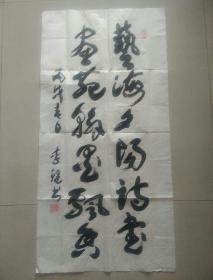 藝海夕陽詩畫
書苑翰墨飄香
丙午春日 李 書